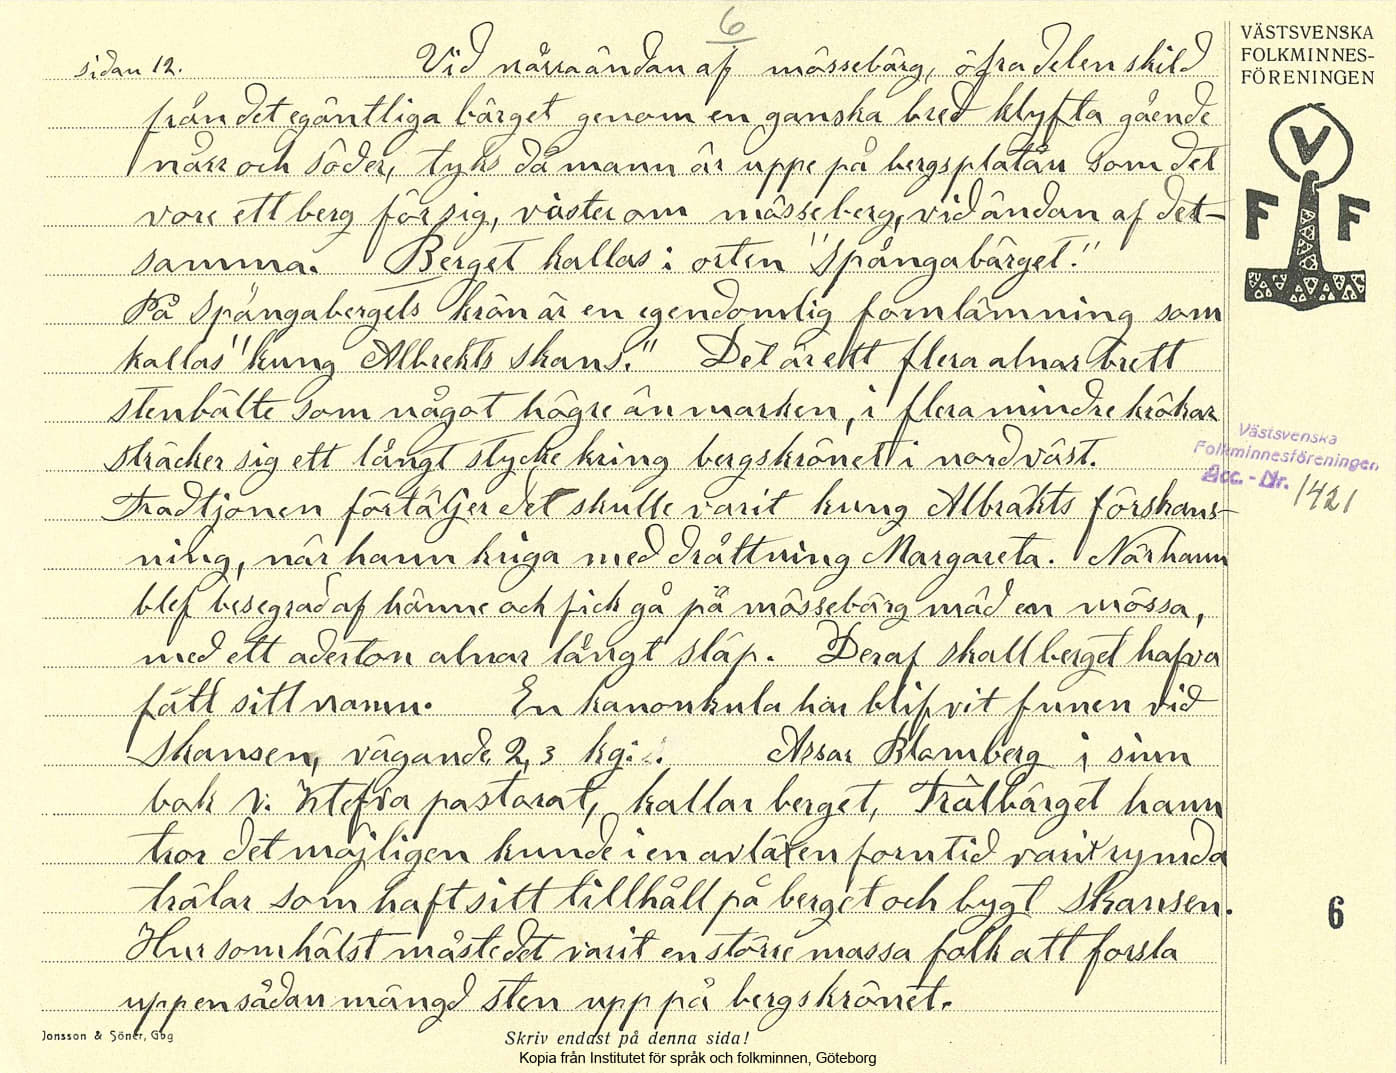 6
sidan 12.
Vid nårraändan af mössebärg, öfra delen skild
från det egäntliga bärget genom en ganska bred klyfta gående
nårr och söder, tyks då mann är uppe på bergsplatån som det
vore ett berg för sig, väster om mösseberg, vid ändan af det-
samma. Berget kallas i orten "Spångabärget."
På Spångabergets krön är en egendomlig fornlämning som
kallas "kung Albrekts skans." Det är ett flera alnar brett
stenbälte som något högre än marken, i flera mindre krökar
sträcker sig ett långt stycke kring bergskrönet i nordväst.
Tradtjonen förtäljer det skulle varit kung Albräkts förskans-
ning, när hann kriga med dråttning Margareta. När hann
blef besegrad af hänne och fick gå på mössebärg mäd en mössa,
med ett aderton alnar långt släp. Deraf skall berget hafva
fått sitt namn. En kanonkula har blifvit funen vid
skansen, vägande 2,3 kg.
Assar Blomberg i sinn
bok V. Kleva pastorat, kallar berget, Trälbärget hann
tror det möjligen kunde i en avlägen forntid varit rymda
trälar som haft sitt tillhåll på berget och bygt skansen.
Hur som hälst måste det varit en större massa folk att forsla
upp en sådan mängd sten upp på bergskrönet.
VÄSTSVENSKA
FOLKMINNES-
FÖRENINGEN
V
F F
Västsvenska
Folkminnesföreningen
Acc. - Nr. 1421
6
Jonsson & Söner, Gbg
Skriv endast på denna sida!
Kopia från Institutet för språk och folkminnen, Göteborg